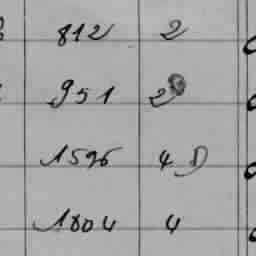 812 2
951 2
1596 4
1804 4